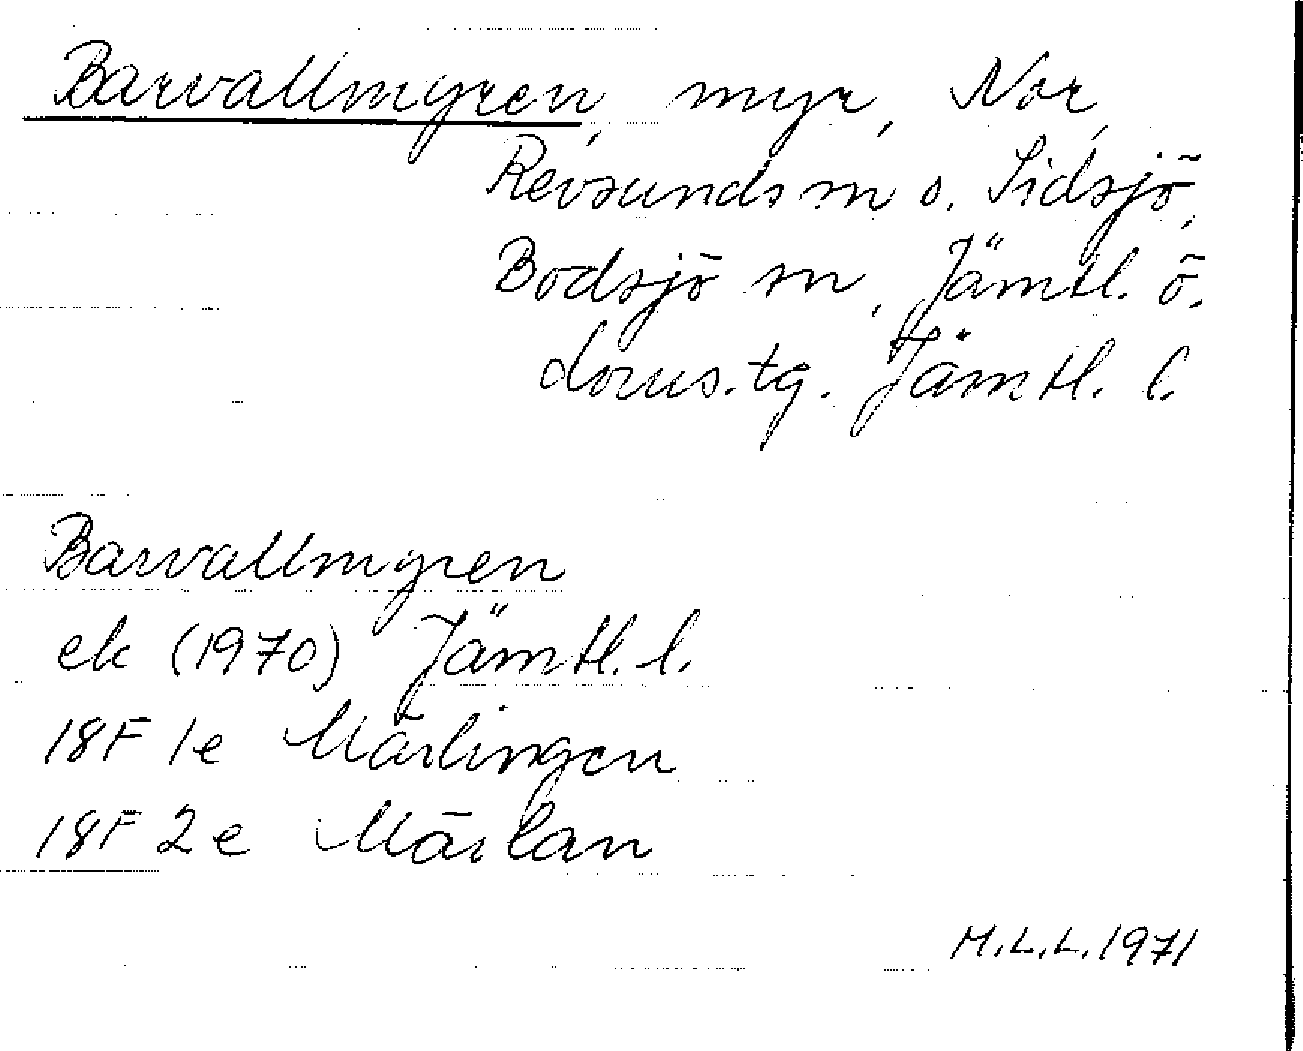 Barvallmyren, myr, Nor,
Revsunds sn o. Sidsjö,
Bodsjö sn, Jämtl. ö.
doms.tg. Jämtl. l.
Barvallmyren
ek (1970) Jämtl. l.
18F 1e Märlingen
18F 2e Märlan
M.L.L. 1971